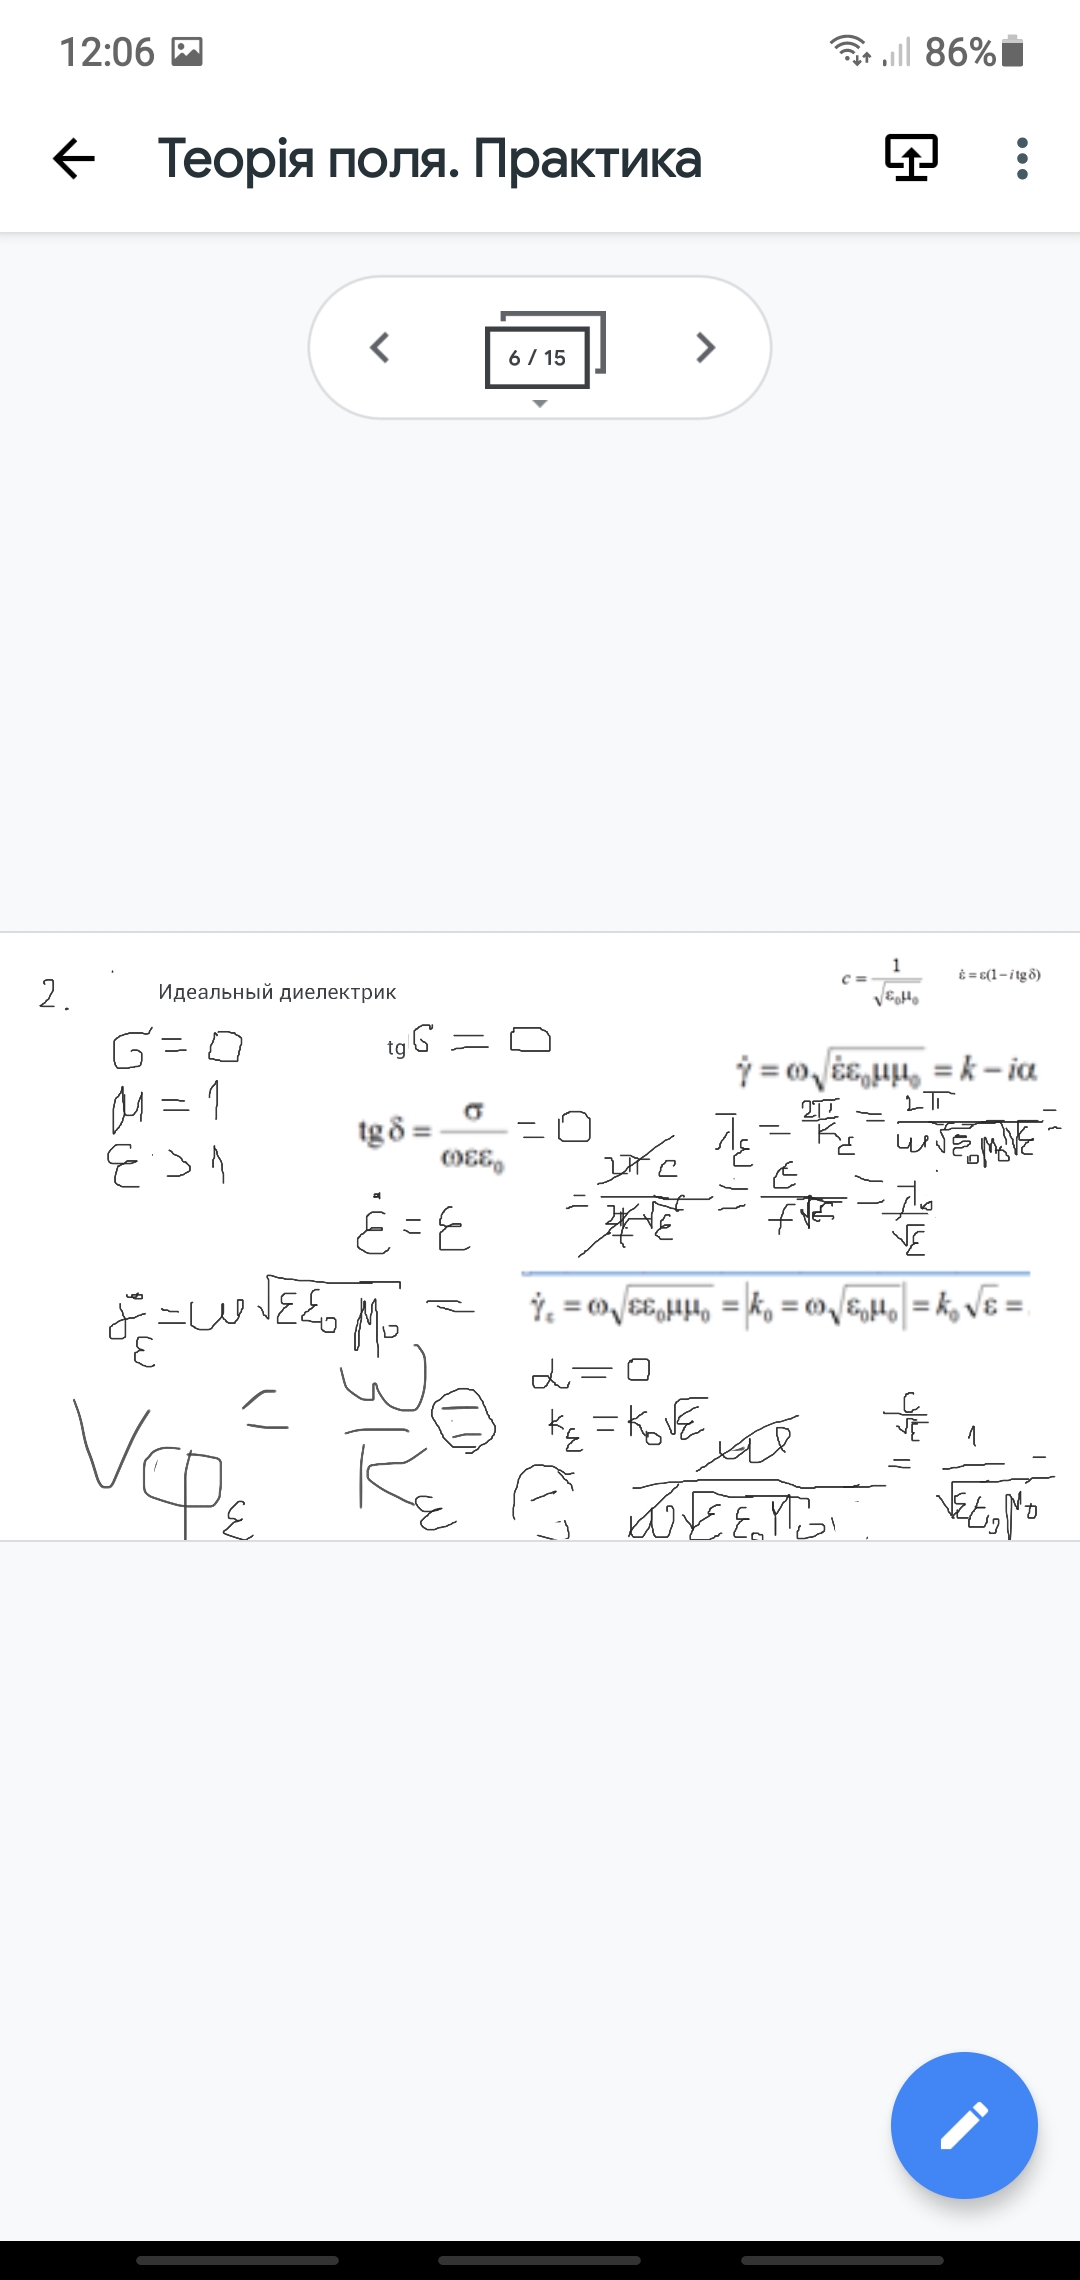 12:06 86%
Теорія поля. Практика
6 / 15
2. Идеальный диелектрик
c = 1/√ε₀μ₀ ε̇ = ε(1 − i tg δ)
σ = 0 tg σ = 0
γ̇ = ω√ε̇ε₀μμ₀ = k − iα
μ = 1
tg δ = σ/ωεε₀ = 0
λ_ε = 2π/k_ε = 2π/ω√ε₀μ₀√ε =
ε > 1
= 2πc/2πf√ε = c/f√ε = λ₀/√ε
ε̇ = ε
γ̇_ε = ω√εε₀μ₀ =
γ̇_ε = ω√εε₀μμ₀ = |k₀ = ω√ε₀μ₀| = k₀√ε =
α = 0
k_ε = k₀√ε
V_ф_ε = ω/k_ε = ω/ω√εε₀μ₀ = 1/√εε₀μ₀ =
c/√ε